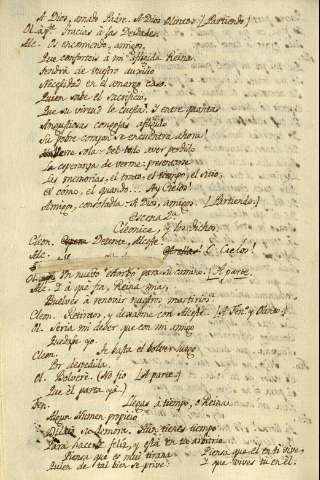 A Dios, amado Padre. A Dios Olinto. (Partiendo)
Ol. apte. Gracias a las Deidades.
Alc. Os encomiendo, amigos,
Que conforteis á mi afligida Reina.
Tendrá de vuestro auxilio
Necesidad en el amargo caso.
Quien sabe el sacrificio,
Que su virtud le cuesta? Y entre quantas
Angustiosas congojas afligido
Su pobre corazon se encuentra ahora!
sola: Del todo aver perdido
La esperanza de verme: presentarse
Las memorias, el trato, el tiempo, el sitio,
El cómo, el quando... Ay Cielos!
Amigos, consoladla: A Dios, amigos. (Partiendo.)
Escena 2a.
Cleonice, y los Dichos.
Cleon. Detente, Alceste.
Alc. O Cielos!
Ol. Un nuevo estorbo para su camino. (A parte.)
Alc. A qué fin, Reina mia,
Buelves á renovir nuestros martirios?
Cleon. Retiraos, y dexadme con Alceste. (A Fen.o y Olinto)
Ol. Seria mi deber que con mi amigo
Quedase yo.
Cleon. Te basta el bolver luego
Por despedida.
Ol. Bolveré. (No fio (A parte.)
Que él parta ya.)
Fen. Llegas á tiempo, ó Reina.
Algun Numen propicio
la demora. Aun tienes tiempo
Para hacerte feliz, y está en tu arbitrio.
Piensa que es mui tirana
Quien de tal bien se prive.
Piensa que él en ti vive,
I que vives tú en él.